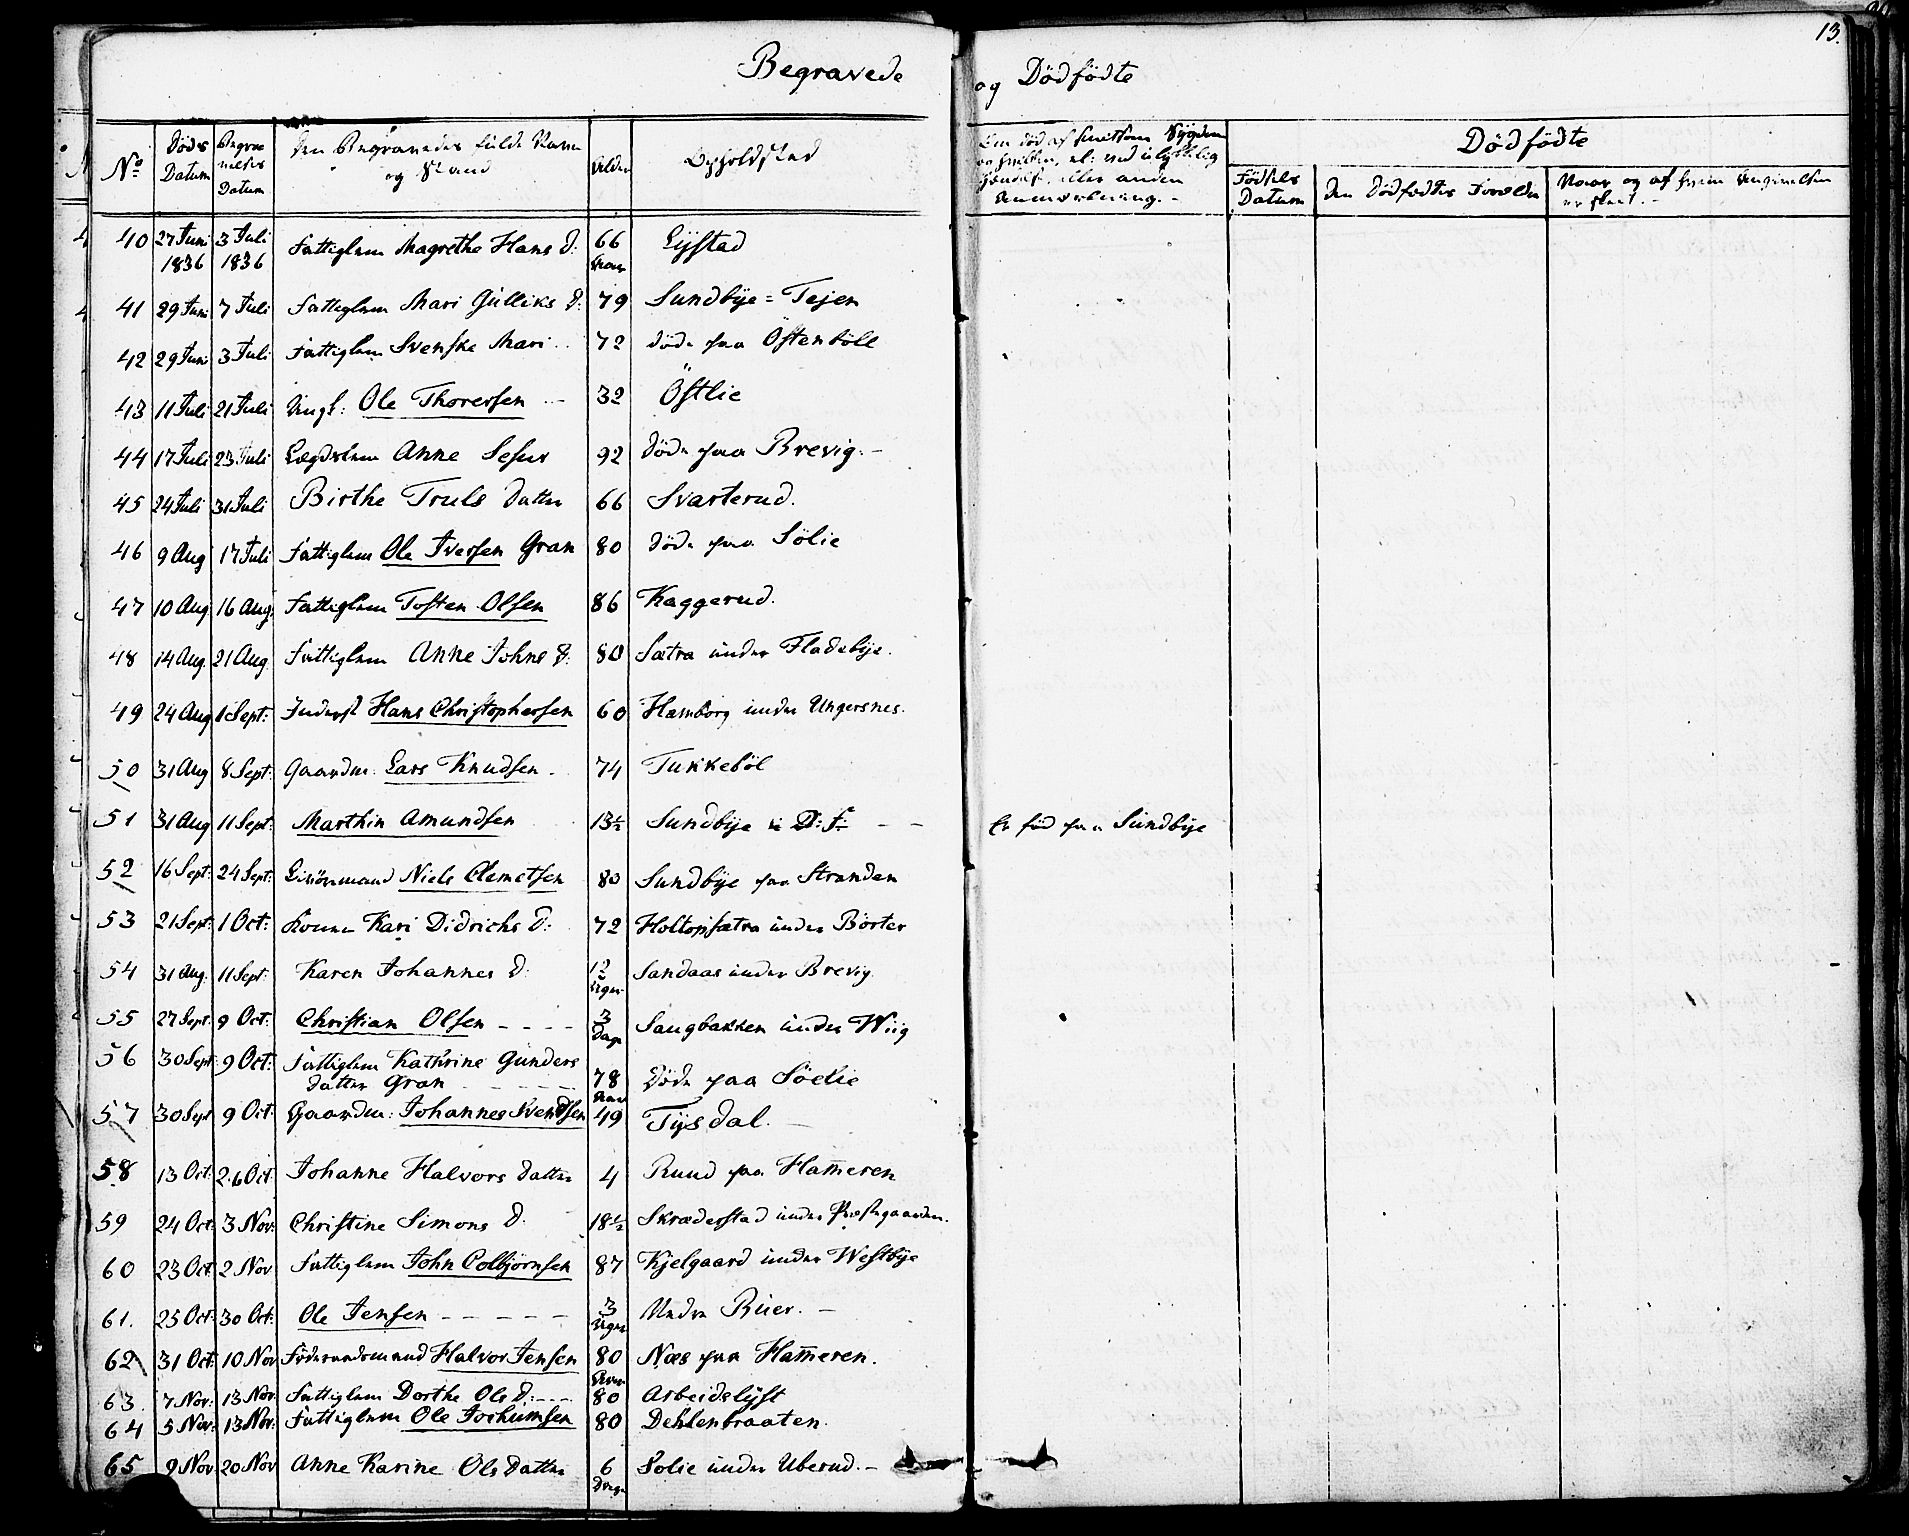 Begravede
og Dödfödte
13.
No
Döds Datum
Begravelses Datum
Den Begravedes fulde Navn og Stand
Alder
Opholdsted
Om död af smitsom Sygdom
eller anden
Anmærkning.
Dödfödte
Födsels Datum
Den Dödfödtes Forældre
Naar og af hvem Anmeldelsen er skeet.
40 27 Juni 1836 3 Juli 1836 Fattiglem Magrethe Hans D: 66 Aar Lystad
41 29 Juni 7 Juli Fattiglem Mari Gulliks D: 79 Sundbye = Tejen
42 29 Juni 3 Juli Fattiglem Svenske Mari 72 döde paa Östenböll
43 11 Juli 21 Juli Ungk: Ole Thoresen 32 Östlie
44 17 Juli 23 Juli Lægdslem Anne 92 döde paa Brevig.
45 24 Juli 31 Juli Birthe Truls datter 66 Svarterud.
46 9 Aug 17 Juli Fattiglem Ole Iversen Gran 80 döde paa Sölie
47 10 Aug 16 Aug Fattiglem Tosten Olsen 86 Kaggerud.
48 14 Aug. 21 Aug Fattiglem Anne Johns D: 80 Sætra under Fladebye.
49 24 Aug 1 Sept: Inderst Hans Christophersen 60 Hamborg under Ungersnes.
50 31 Aug 8 Sept: Gaardm: Lars Knudsen. 74 Tukkeböl
51 31 Aug 11 Sept: Marthin Amundsen 13½ Sundbye i D: F: Er föd paa Sundbye
52 16 Sept: 24 Sept: Niels Clemetsen 80 Sundbye paa Stranden
53 21 Sept: 1 Oct: Kone Kari Didrichs D: 72 Holtopsætra under Börter
54 31 Aug. 11 Sept: Karen Johannes D: 12 Uger Sandaas under Brevig
55 27 Sept 9 Oct: Christian Olsen 3 Dage Saugbakken under Wiig
56 30 Sept 9 Oct: Fattiglem Kathrine Gunders
datter Gran 78 Aar Döde paa Söelie
57 30 Sept 9 Oct: Gaardm: Johannes Svendsen 49 Tysdal.
58 13 Oct: 26 Oct Johanne Halvors datter 4 Ruud paa Ham̄eren
59 24 Oct: 3 Nov: Christine Simons D: 18½ Skræderstad under Præstegaarden.
60 23 Oct 2 Nov Fattiglem John Colbjörnsen 87 Kjelgaard under Westbye
61. 25 Oct: 30 Oct: Ole Jensen 3 Uger Nedre Buer.
62 31 Oct: 10 Nov Föderaadsmand Halvor Jensen 80 Aar Næs paa Ham̄eren.
63. 7 Nov: 13 Nov: Fattiglem Dorthe Ols D: 80 Arbeidslyst
64 5 Nov: 13 Nov: Fattiglem Ole Jochumsen 80 Dehlenbraaten.
65 9 Nov 20 Nov Anne Karine Ols datter 6 Dage Solie under Uberud.